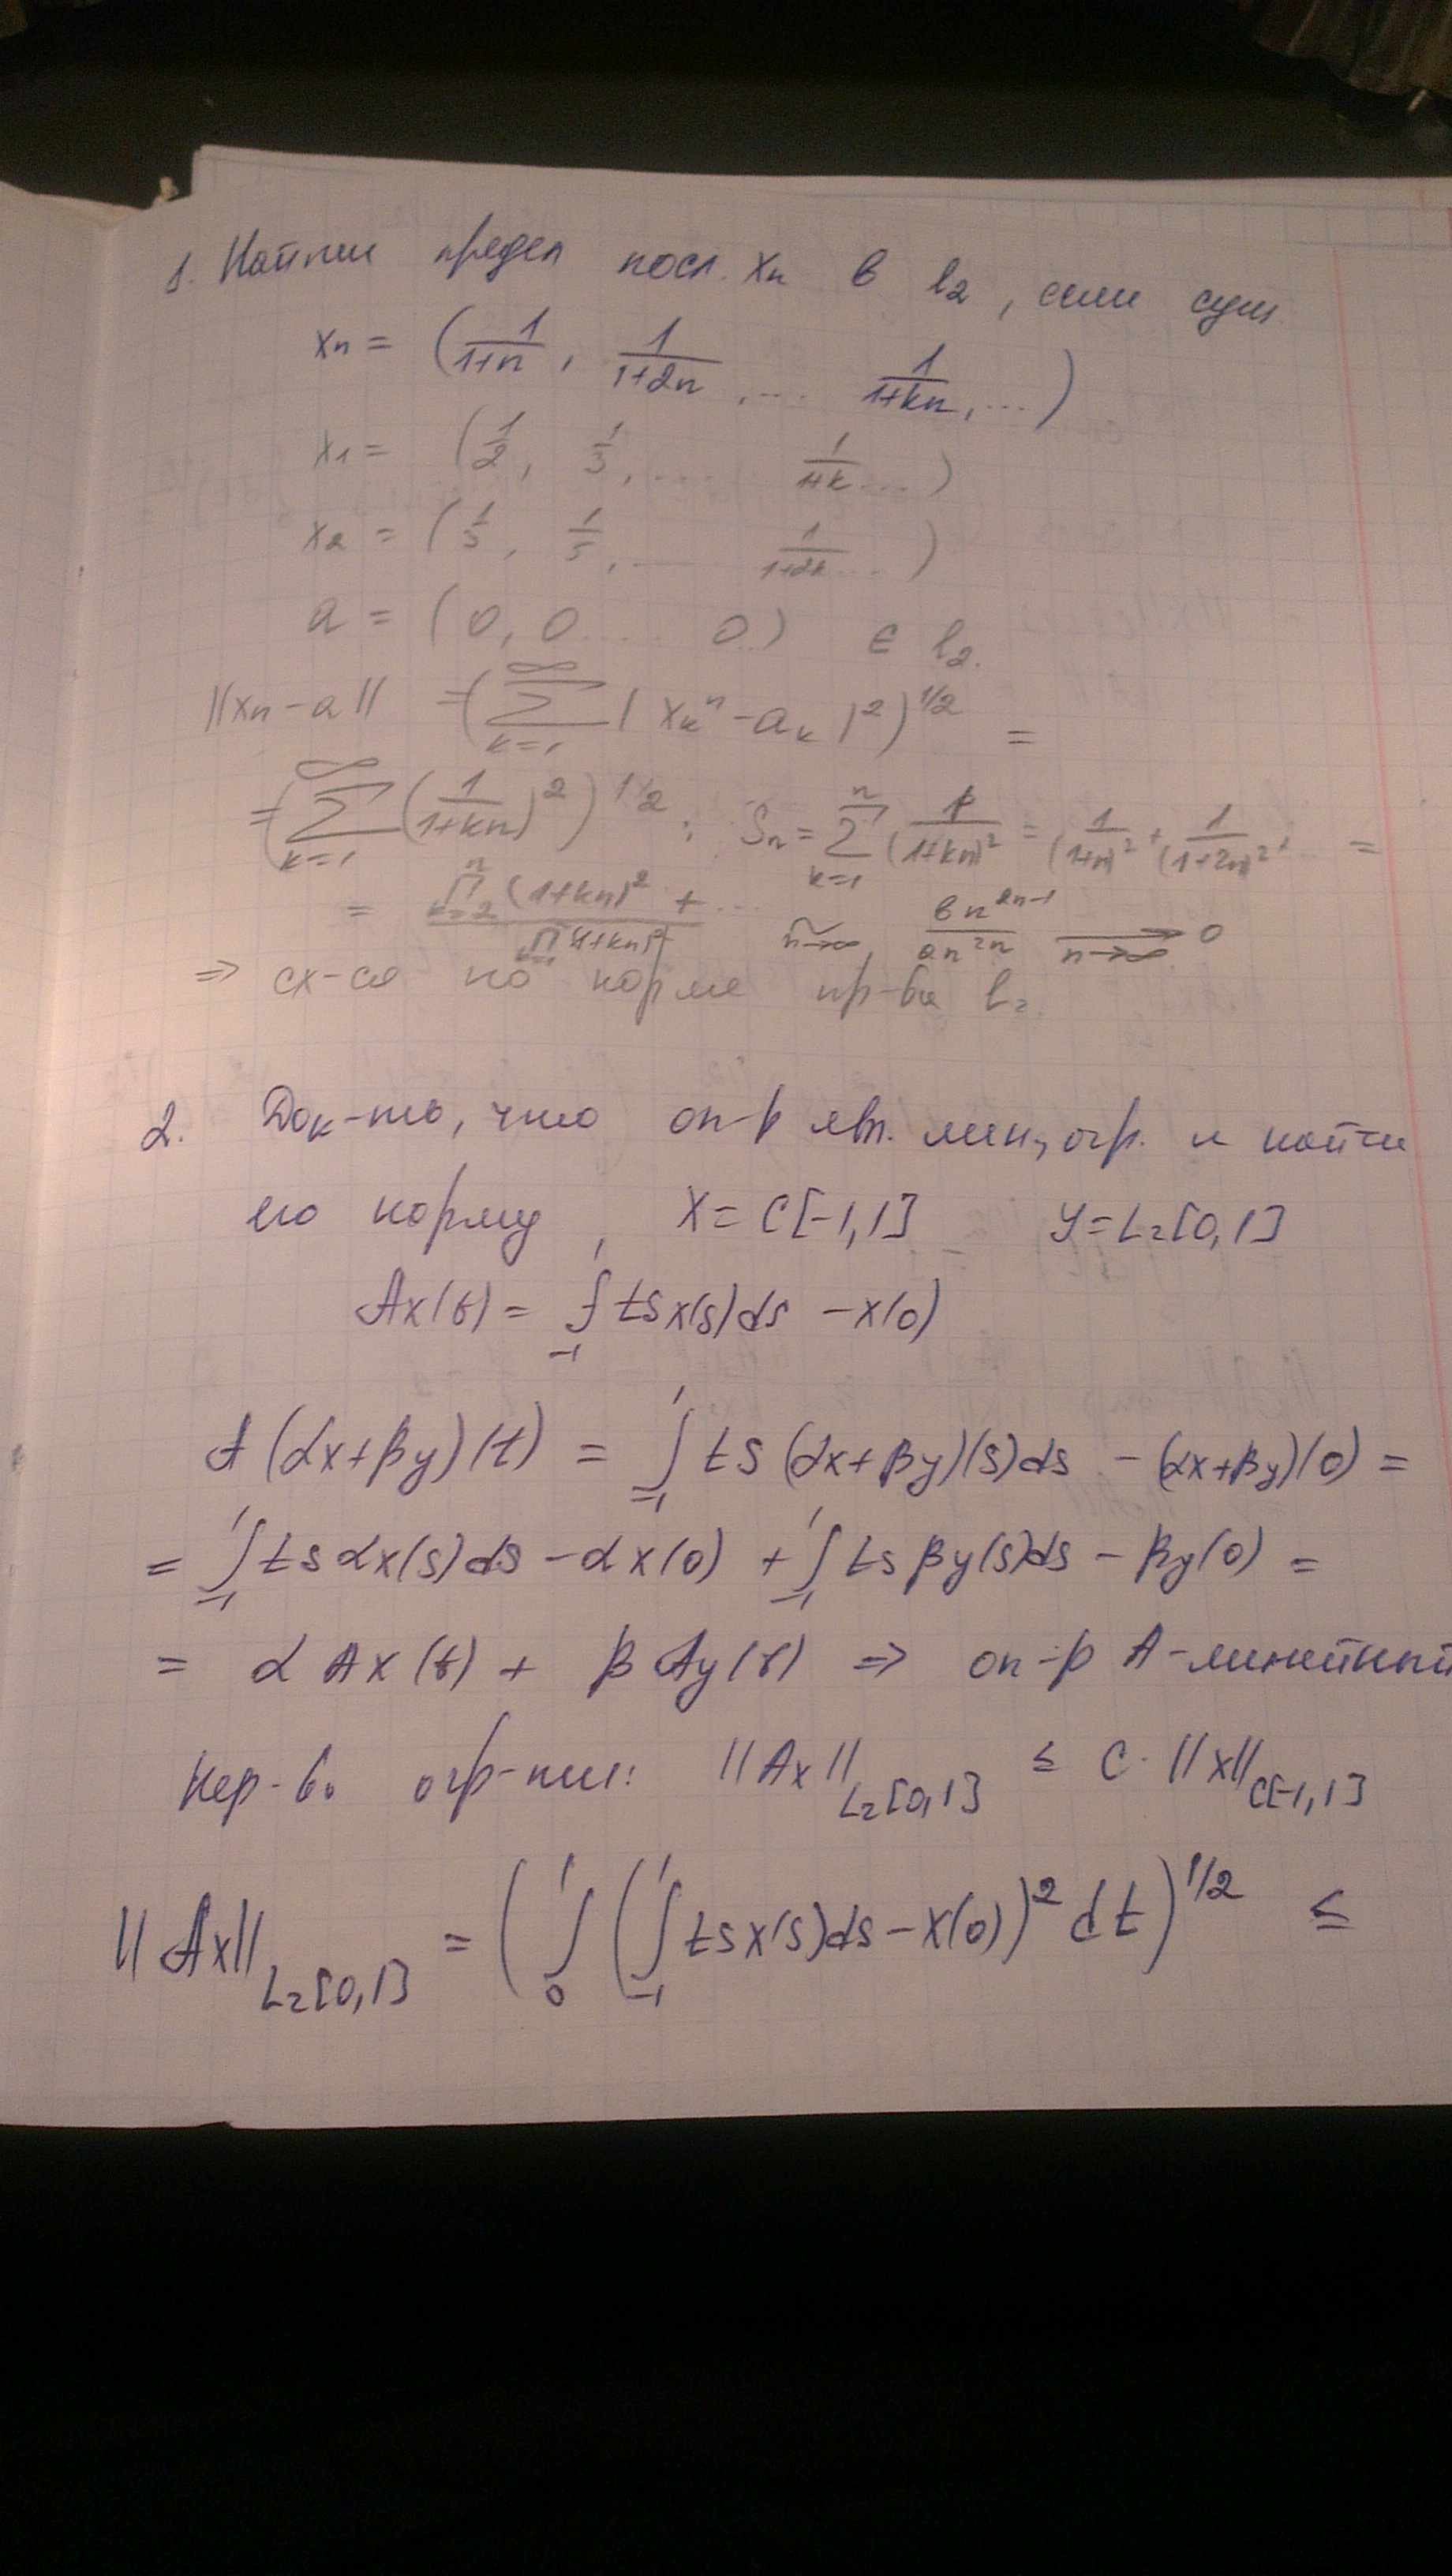 1. Найти предел посл. xₙ в l₂, если сущ.
xₙ = (1/(1+n), 1/(1+2n), ... 1/(1+kn), ...)
x₁ = (1/2, 1/3, .... 1/(1+k) ...)
x₂ = (1/3, 1/5, .... 1/(1+2k) ...)
a = (0, 0 .... 0..) ∈ l₂.
||xₙ - a|| = (∑_{k=1}^{∞} |xₖⁿ - aₖ|²)^{1/2} =
= (∑_{k=1}^{∞} (1/(1+kn))²)^{1/2}; Sₙ = ∑_{k=1}^{n} 1/(1+kn)² = 1/(1+n)² + 1/(1+2n)² + ... =
= (∏_{k=2}^{n} (1+kn)² + ...)/(∏_{k=1}^{n} (1+kn)²) ~_{n→∞} (b n^{2n-1})/(a n^{2n}) →_{n→∞} 0
⇒ сх-ся по норме пр-ва l₂.
2. Док-ть, что оп-р явл. лин., огр. и найти
его норму, X = C[-1,1] Y = L₂[0,1]
Ax(t) = ∫_{-1}^{1} ts x(s) ds - x(0)
A(αx+βy)(t) = ∫_{-1}^{1} ts (αx+βy)(s) ds - (αx+βy)(0) =
= ∫_{-1}^{1} ts αx(s) ds - αx(0) + ∫_{-1}^{1} ts βy(s) ds - βy(0) =
= α Ax(t) + β Ay(t) ⇒ оп-р A-линейный
Нер-во огр-ти: ||Ax||_{L₂[0,1]} ≤ C · ||x||_{C[-1,1]}
||Ax||_{L₂[0,1]} = (∫_{0}^{1} (∫_{-1}^{1} ts x(s) ds - x(0))² dt)^{1/2} ≤